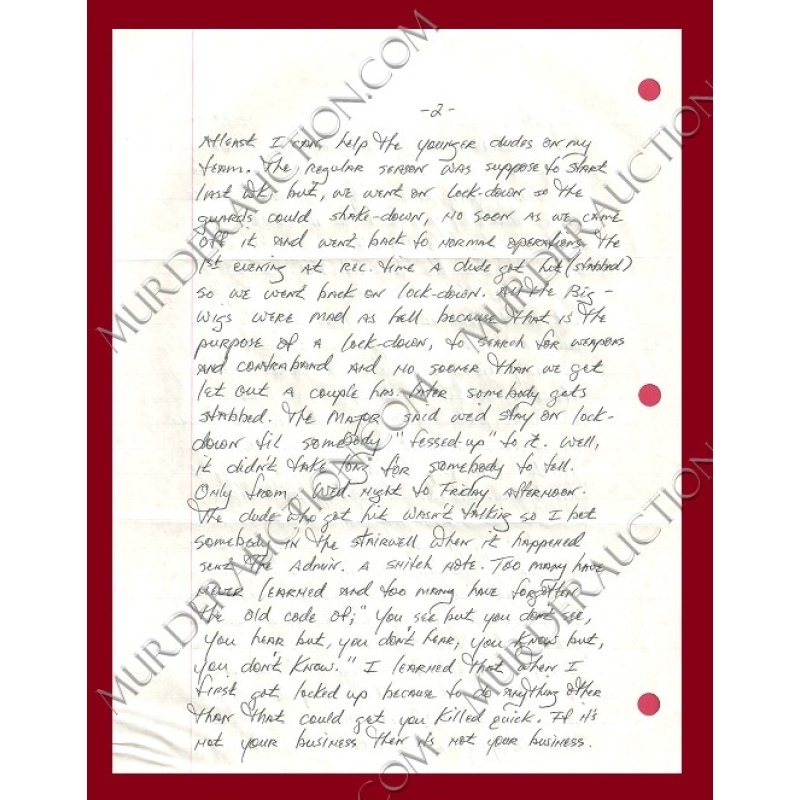 -2-
Atleast I can help the younger dudes on my
team. The regular season was suppose to start
last wk. but, we went on lock-down so the
guards could shake-down, no soon as we came
off it and went back to normal operations the
1st evening at rec. time a dude got hit (stabbed)
so we went back on lock-down. All the Big-
wigs were mad as hell because that is the
purpose of a lock-down, to search for weapons
and contraband and no sooner than we get
let out a couple hrs. later somebody gets
stabbed. The Major said we'd stay on lock-
down til somebody "fessed-up" to it. Well,
it didn't take long for somebody to tell.
Only from Wed. night to Friday afternoon.
The dude who got hit wasn't talking so I bet
somebody in the stairwell when it happened
sent the Admin. a snitch note. Too many have
never learned and too many have forgotten
the old code of; "you see but you don't see,
you hear but, you don't hear, you know but,
you don't know." I learned that when I
first got locked up because to do anything other
than that could get you killed quick. If it's
not your business then it's not your business.
MURDERAUCTION.COM